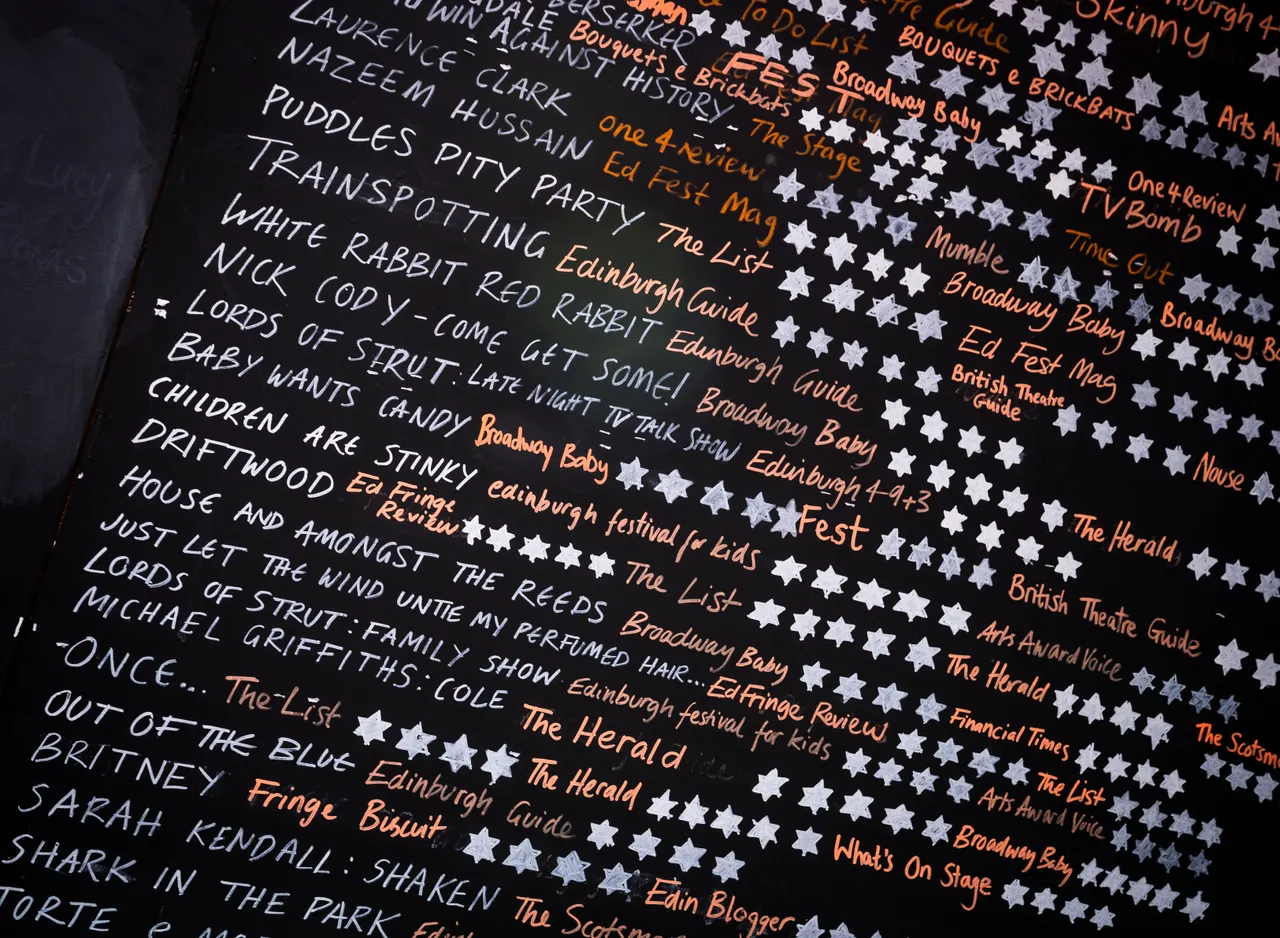 To Do List Guide Skinny
BERSERKER FEST Broadway Baby One 4 Review
Bouquets e Brickbats BOUQUETS e BRICKBATS TV Bomb
WIN AGAINST HISTORY - The Stage Time Out
LAURENCE CLARK one 4 review ★★★★ Mumble ★★★★ Broadway
NAZEEM HUSSAIN Ed Fest Mag ★★★★ Broadway Baby ★★★★
PUDDLES PITY PARTY The List ★★★★ Ed Fest Mag ★★★★
TRAINSPOTTING Edinburgh Guide ★★★★★ British Theatre Guide ★★★★ Nouse ★
WHITE RABBIT RED RABBIT Edinburgh Guide ★★★★
NICK CODY - COME GET SOME! Broadway Baby ★★★★★ The Herald ★★★
LORDS OF STRUT: LATE NIGHT TV TALK SHOW Edinburgh 4-9+3 ★★★★
BABY WANTS CANDY Broadway Baby ★★★★★ Fest ★★★★ British Theatre Guide ★★
CHILDREN ARE STINKY edinburgh festival for kids ★★★★★ Arts Award Voice ★★★★
DRIFTWOOD Ed Fringe Review ★★★★★ The List ★★★★★ The Herald ★★★★ The
HOUSE AND AMONGST THE REEDS Broadway Baby ★★★★ Financial Times ★★★★
JUST LET THE WIND UNTIE MY PERFUMED HAIR... Ed Fringe Review ★★★★ The List ★★★★
LORDS OF STRUT: FAMILY SHOW Edinburgh festival for kids ★★★★★ Arts Award Voice ★★★★
MICHAEL GRIFFITHS: COLE The Herald ★★★★★ Broadway Baby ★★★★★
-ONCE... The List ★★★★ The Herald ★★★★★ What's On Stage ★★★★
OUT OF THE BLUE Edinburgh Guide ★★★★
BRITNEY Fringe Biscuit ★★★★ Edin Blogger
SARAH KENDALL: SHAKEN The
SHARK IN THE PARK
TORTE e